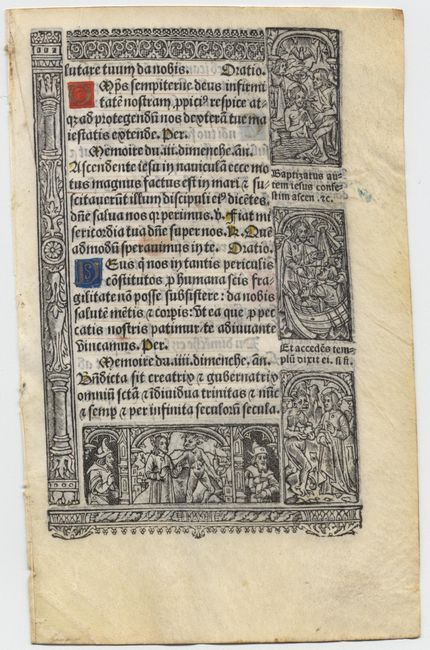 lutare tuum da nobis. Oratio.
OMp̄s sempiterne deus infirmi
tatē nostram ꝓpici⁹ respice at-
qꝫ ad protegendū nos dexterā tue ma
iestatis extende. Per.
Memoire du.iii.dimenche. añ.
Ascendente iesu in nauiculā ecce mo
tus magnus factus est in mari ⁊ su
scitauerūt illum discipuli ei⁹ dicētes,
dñe salua nos qꝛ perimus. ꝟ. Fiat mi
sericordia tua dñe super nos. ꝶ. Quē
admodū sperauimus in te. Oratio.
DEus q̇ nos in tantis periculis
cōstitutos ꝓ humana scis fra
gilitate nō posse subsistere: da nobis
salutē mētis ⁊ corpis: vt ea que ꝓ pec
catis nostris patimur te adiuuante
vincamus. Per.
Memoire du.iiii.dimenche. añ.
Bñdicta sit creatrix ⁊ gubernatrix
omniū sctā ⁊ īdiuidua trinitas ⁊ nūc
⁊ semꝑ ⁊ per infinita seculorū secula.
Baptizatus au-
tem iesus confe-
stim ascen. ⁊c.
Et accedēs tem-
ptā dixit ei. si fi.